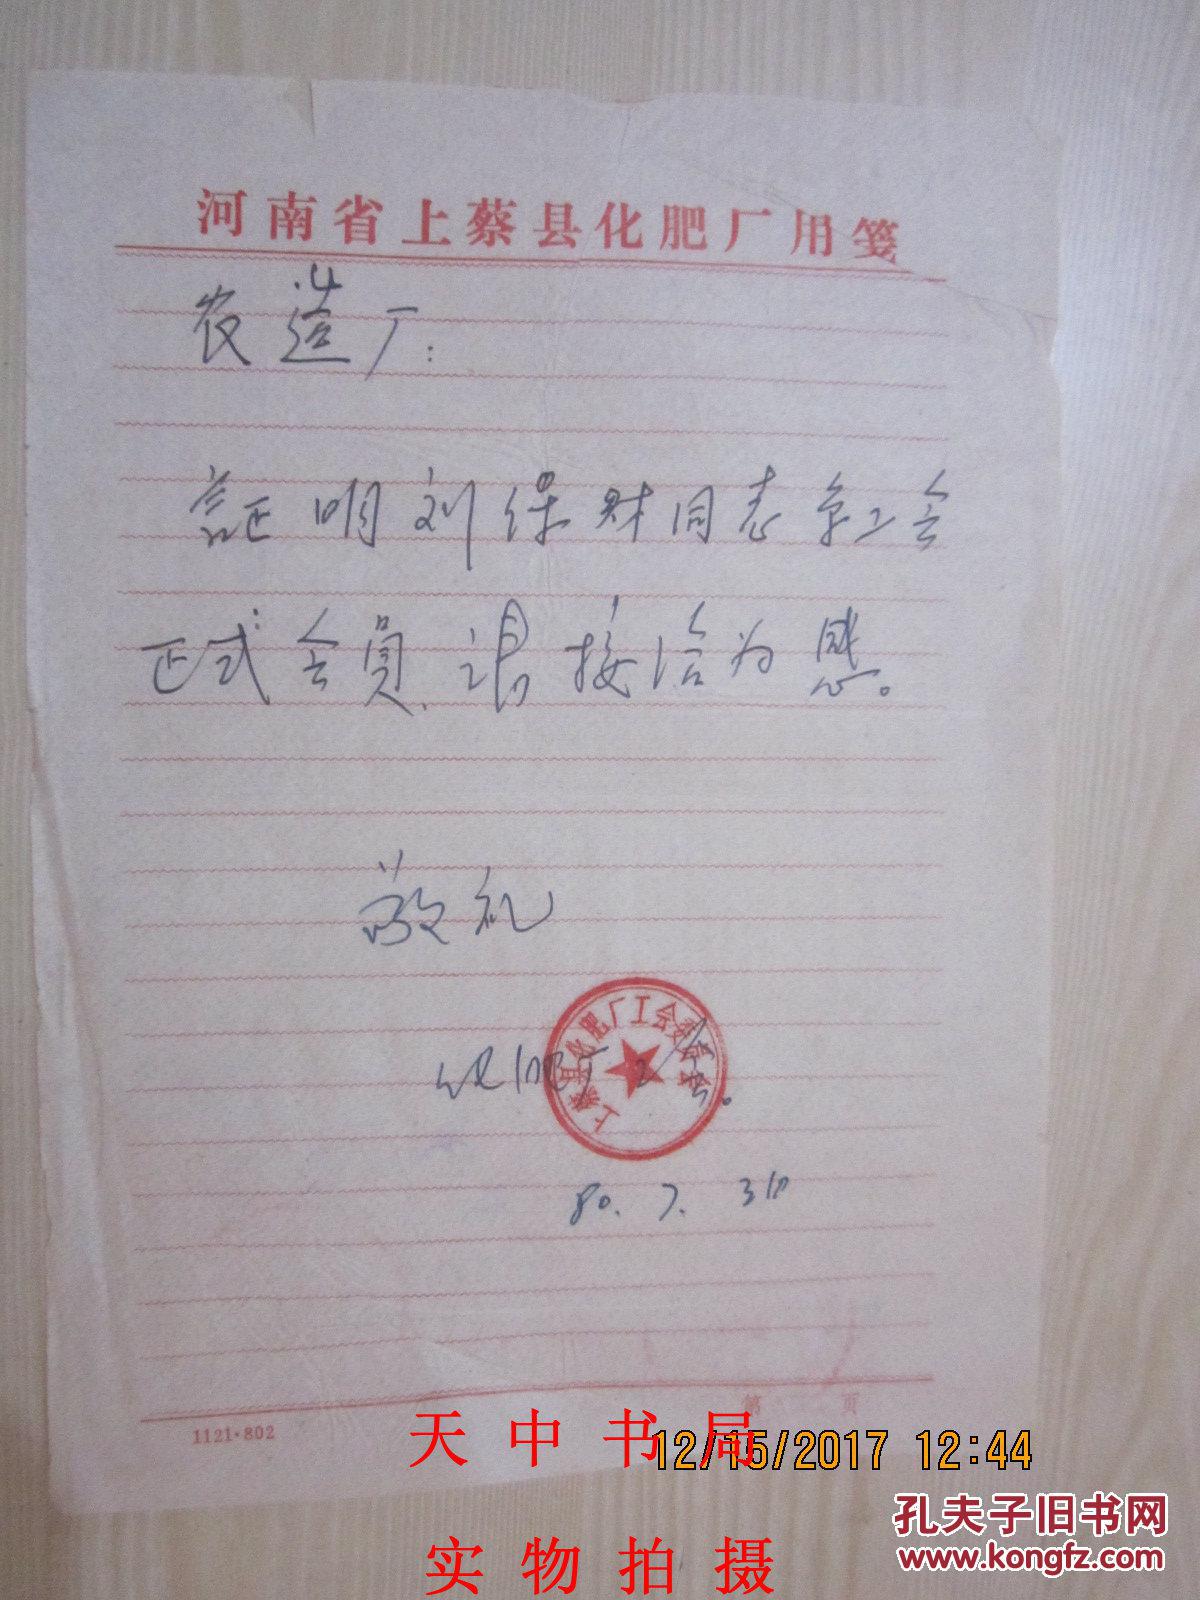 河南省上蔡县化肥厂用笺
农造厂：
証明刘保财同志系工会
正式会員、請接洽为感。
敬礼
化肥厂工会。
上蔡县化肥厂工会委员会
80.7.3日
第 页
1121·802
天中书局
12/15/2017 12:44
孔夫子旧书网
www.kongfz.com
实物拍摄